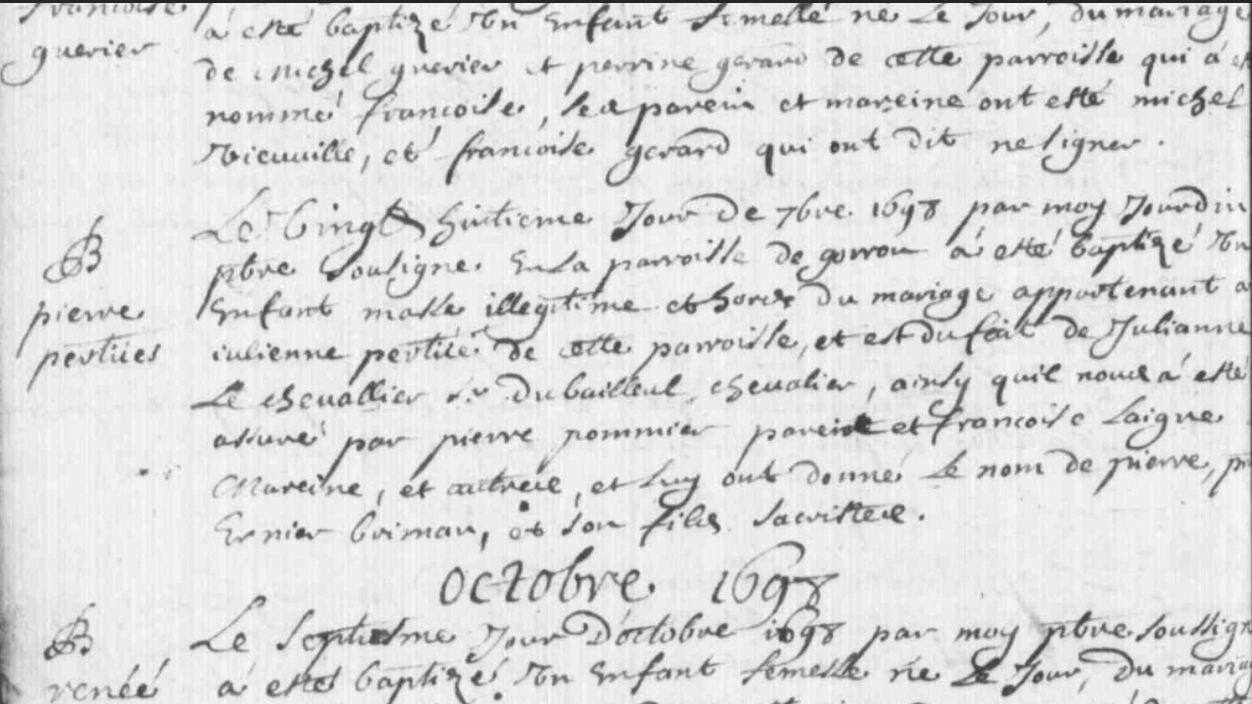 francoise
guerier
à esté baptizé Vn Enfant femelle né Le Jour, du mariage
de michel guerier et perrine gerard de cette parroisse qui à
nommé francoise, ses parein et mareine ont esté michel
Vieuville, et francoise gerard qui ont dit ne signer.
B
pierre
pertües
Le Vingt huitieme Jour de 7bre 1698 par moy Jourdin
pbre Sousigné En La parroisse de gorron à esté baptizé Vn
Enfant masle illegitime et hors du mariage appartenant a
iulienne pertüé de cette parroisse, et est du fait de Julianne
Le chevallier sr Dubailleul chevalier, ainsy quil nous à esté
assuré par pierre pommier parein et francoise Laigre
Mareine, et autres, et Luy ont donné Le nom de pierre,
Ernier briman, et son fils sacristes.
Octobre 1698
B
renée
Le Septiesme Jour D'octobre 1698 par moy pbre soussign
à esté baptizé Vn Enfant femelle né Le Jour, du mariag